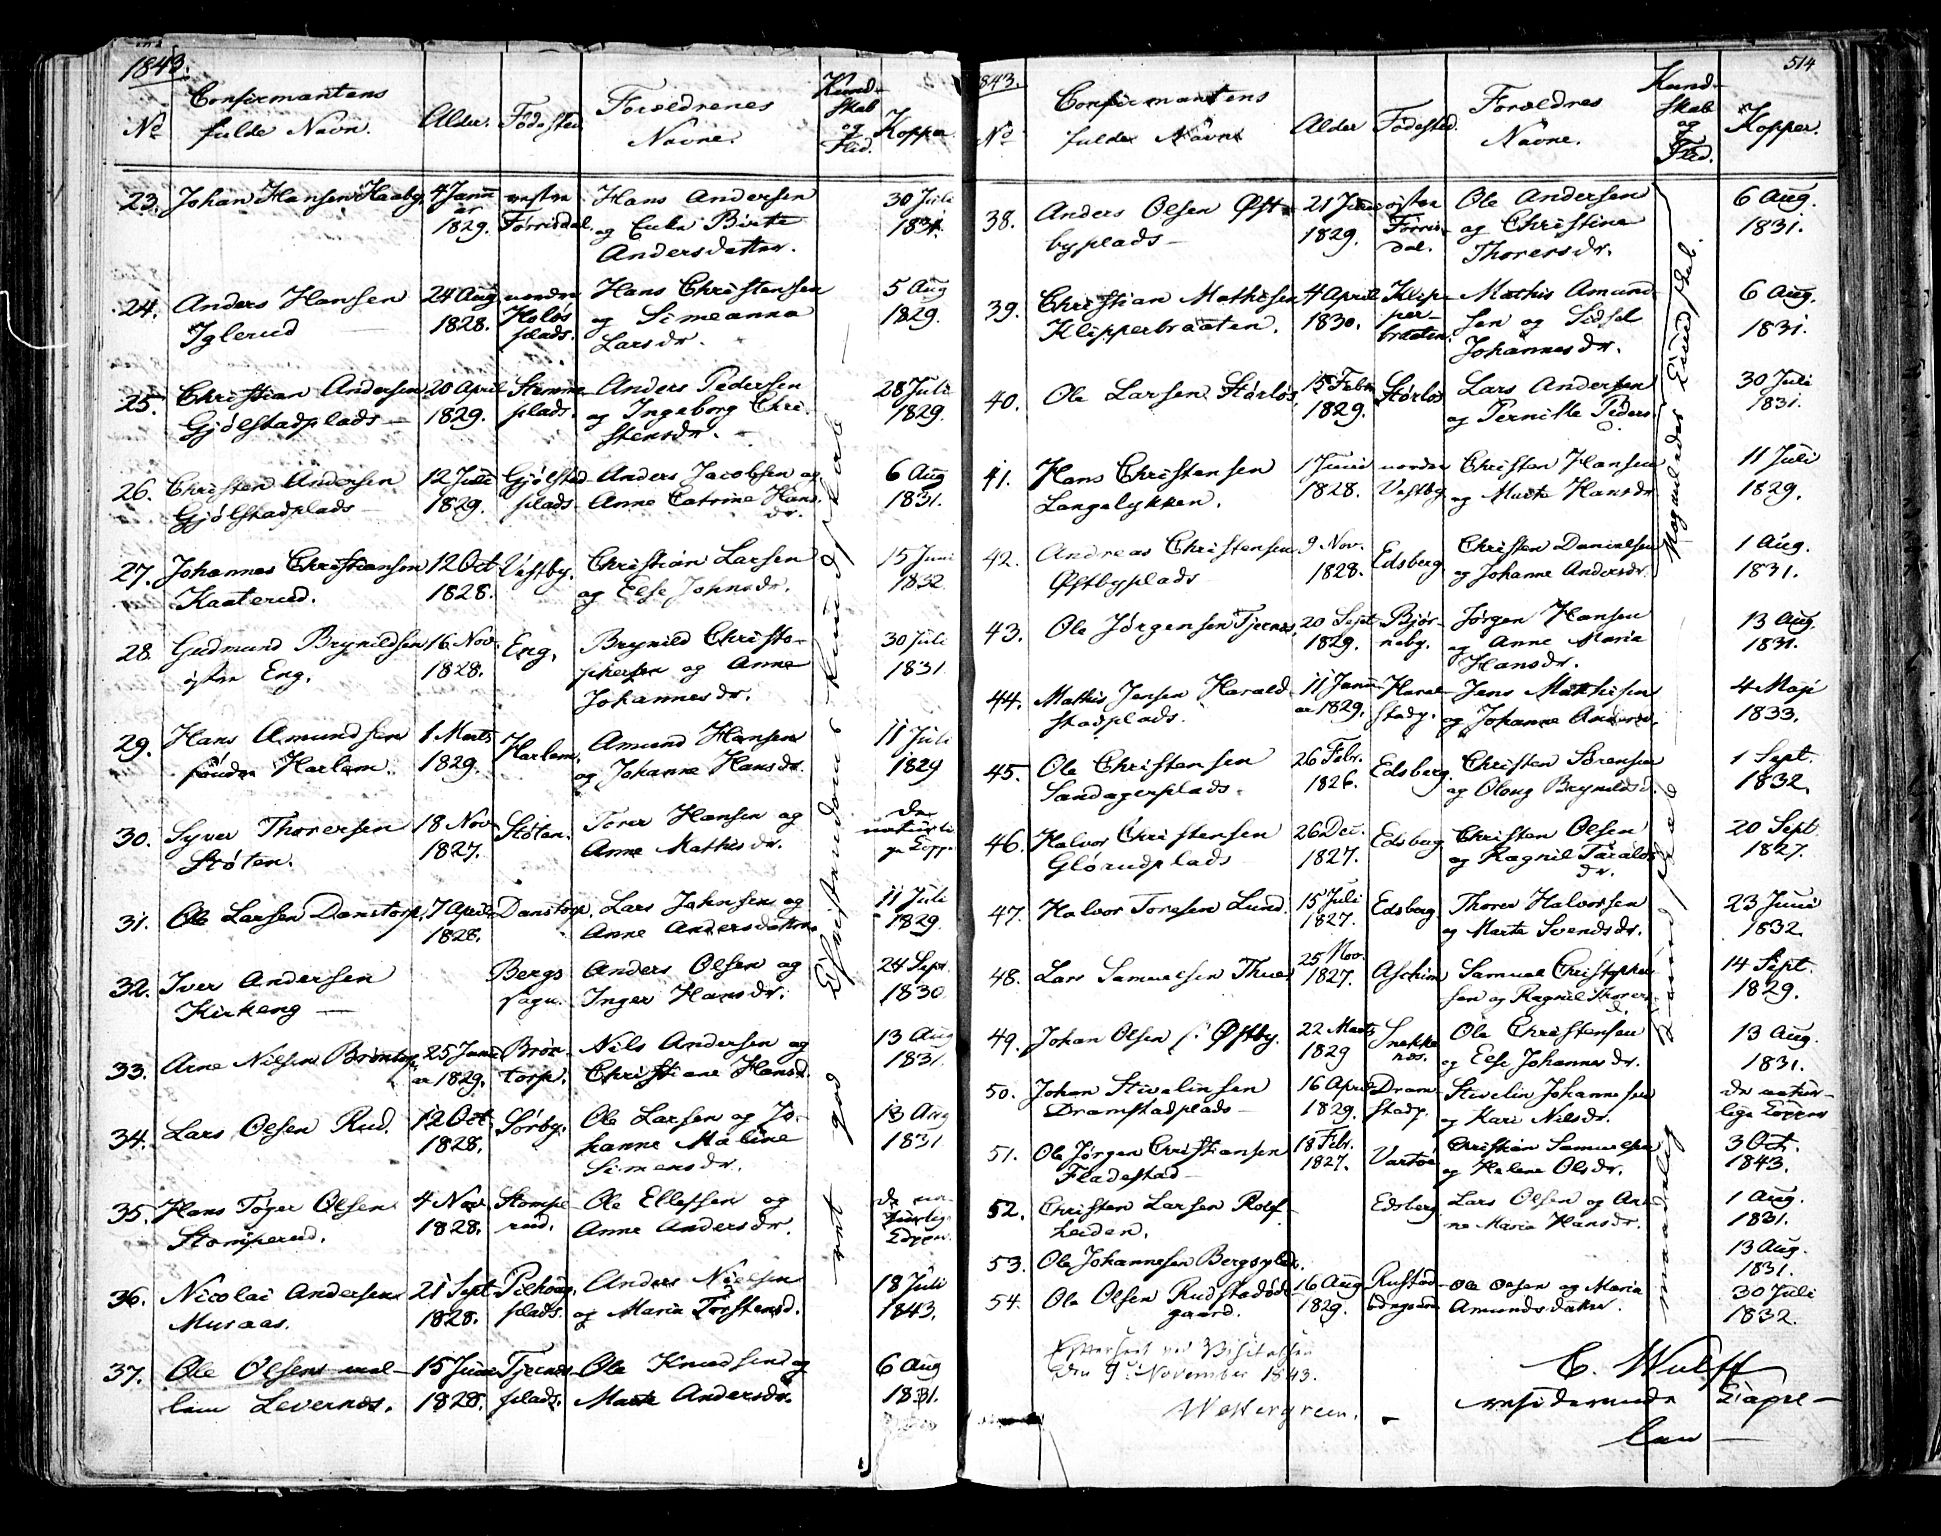 1843.
No
Confirmantens
fulde Navn.
Alder.
Fødested
Forældrenes
Navne.
Kund-
skab
og
Flid.
Kopper
23. Johan Hansen Haaby 4 Janu ar 1829. vestre Førrisdal. Hans Andersen 30 Juli
og Birte 1831.
Andersdatter.
24. Anders Hansen 24 Aug nordre Hans Christensen 5 Aug
Iglerud 1828. Holøs plads. og Simeanna 1829.
Larsdr.
25. Christian Andersen 20 April Stemme Anders Pedersen 28 Juli
Gjølstadplads 1829. plads. og Ingeborg Chri- 1829.
stensdr.
26. Christen Andersen 12 Juli Gjølstad Anders Jacobsen og 6 Aug
Gjølstadplads 1829. plads Anne Catrine Hans 1831.
dr.
27. Johannes Christiansen 12 Oct Vestby. Christian Larsen 15 Juni
Kaaterud. 1828. og Else Johnsdr. 1832
28 Gudmund Brynildsen 16 Nov. Eng. Brynild Christo- 30 Juli
østre Eng. 1828. phersen og Anne 1831
Johannesdr.
29. Hans Amundsen 1 Marts Harlem. Amund Hansen 11 Juli
søndre Harlem. 1829. og Johanne Hansdr. 1829
30. Syver Thorersen 18 Nov Støten. Torer Hansen og de naturli
Støten. 1827. Anne Mathisdr. ge Kopp
31. Ole Larsen Danstorp. 7 April Danstorp. Lars Johnsen og 11 Juli
1828. Anne Andersdatter 1829.
32. Iver Andersen Bergs Anders Olsen og 24 Sept
Kirkeng sogn. Inger Hansdr. 1830
33. Arne Nilsen Brøntorp 25 Janu Brøn- Nils Andersen og 13 Aug
ar 1829. torp. Christiane Hansd. 1831.
34. Lars Olsen Rud. 12 Oct. Sørby. Ole Larsen og Jo- 13 Aug
1828. hanne Maline 1831
Simensdr.
35. Hans Toger Olsen 4 Nov Stompe Ole Ellefsen og de na-
Stomperud. 1828. rud. Anne Andersdr. turlige
Kopper.
36. Nicolai Andersen 21 Sept Anders Nielsen 18 Juli
Musaas. 1828. plads. og Maria Torstensd. 1843.
37. Ole Olsen mel- 15 June Tjernes Ole Knudsen og 6 Aug
lem Levernæs. 1828. plads. Marte Andersdr. 1831.
Christendoms Kundskab
god
843.
514
No
Confirmantens
fulde Navne
Alder
Fødested.
Forældres
Navne.
Kund-
skab
og
Flid.
Kopper.
38. Anders Olsen Øst- 21 Janu østre Ole Andersen 6 Aug.
byplads 1829. Førris- dal. og Christine 1831.
Thorersdr.
39. Christian Mathisen 4 April Klip- Mathis Amund- 6 Aug.
Klipperbraaten. 1830. per- braaten sen og Sidsel 1831.
Johannesdr.
40. Ole Larsen Størløs, 15 Febr Størløs Lars Andersen 30 Juli
1829. og Pernille Peders. 1831.
41. Hans Christensen 1 Juni nordre Christen Hansen 11 Juli
Langelykken. 1828. Vestby og Marte Hansdr 1829.
42. Andreas Christensen 9 Nov. Edsberg Christen Danielsen 1 Aug.
Østbyplads 1828. og Johanne Andersdr. 1831.
43. Ole Jørgensen Tjernes, 20 Sept Bjør- Jørgen Hansen 13 Aug.
1829. neby. og Anne Maria 1831.
Hansdr.
44. Mathis Jensen Harald- 11 Janu- Haral- Jens Mathisen 4 Maji
stadplads. ar 1829. stadp. og Johanne Andersd. 1833.
45. Ole Christensen 26 Febr. Edsberg. Christen Sørensen 1 Sept.
Sandagerplads. 1826. og Oloug Brynildsd. 1832.
46. Halvor Christensen 26 Dec. Edsberg Christen Olsen 20 Sept.
Glørudplads 1827. og Ragnil Taralds 1827.
dr.
47. Halvor Toresen Lund. 15 Juli Edsberg Thorer Halvorsen 23 Juni
1827. og Marte Svendsdr. 1832.
48. Lars Samuelsen Thue 25 Nov. Aschim Samuel Christophe 14 Sept.
1827. sen og Ragnil Thorers 1829.
d.
49. Johan Olsen s. Østby. 22 Marts Snekke Ole Christensen 13 Aug.
1829 næs. og Else Johannesdr. 1831.
50. Johan Stivelinsen 16 April Dram- Stivelin Johannesen de natur-
Dramstadplads 1829. stadp. og Kari Nilsdr. lige Kopper
51. Ole Jørgen Christiansen 18 Febr. Christian Samuelsen 3 Oct.
Fladestad 1827. og Helene Olsdr. 1843.
52. Christen Larsen Rolf Edsberg Lars Olsen og An- 1 Aug.
heiden. ne Maria Hansdr. 1831.
53. Ole Johannesen 13 Aug.
1831.
54. Ole Olsen Rudstadøde- 16 Aug Rustad- Ole Olsen og Maria 30 Juli
gaard. 1829. ødegaard Amundsdatter. 1832.
Efterseet ved Visitatsen
den 9 November 1843.
C. Wulff
residerende Capel-
lan